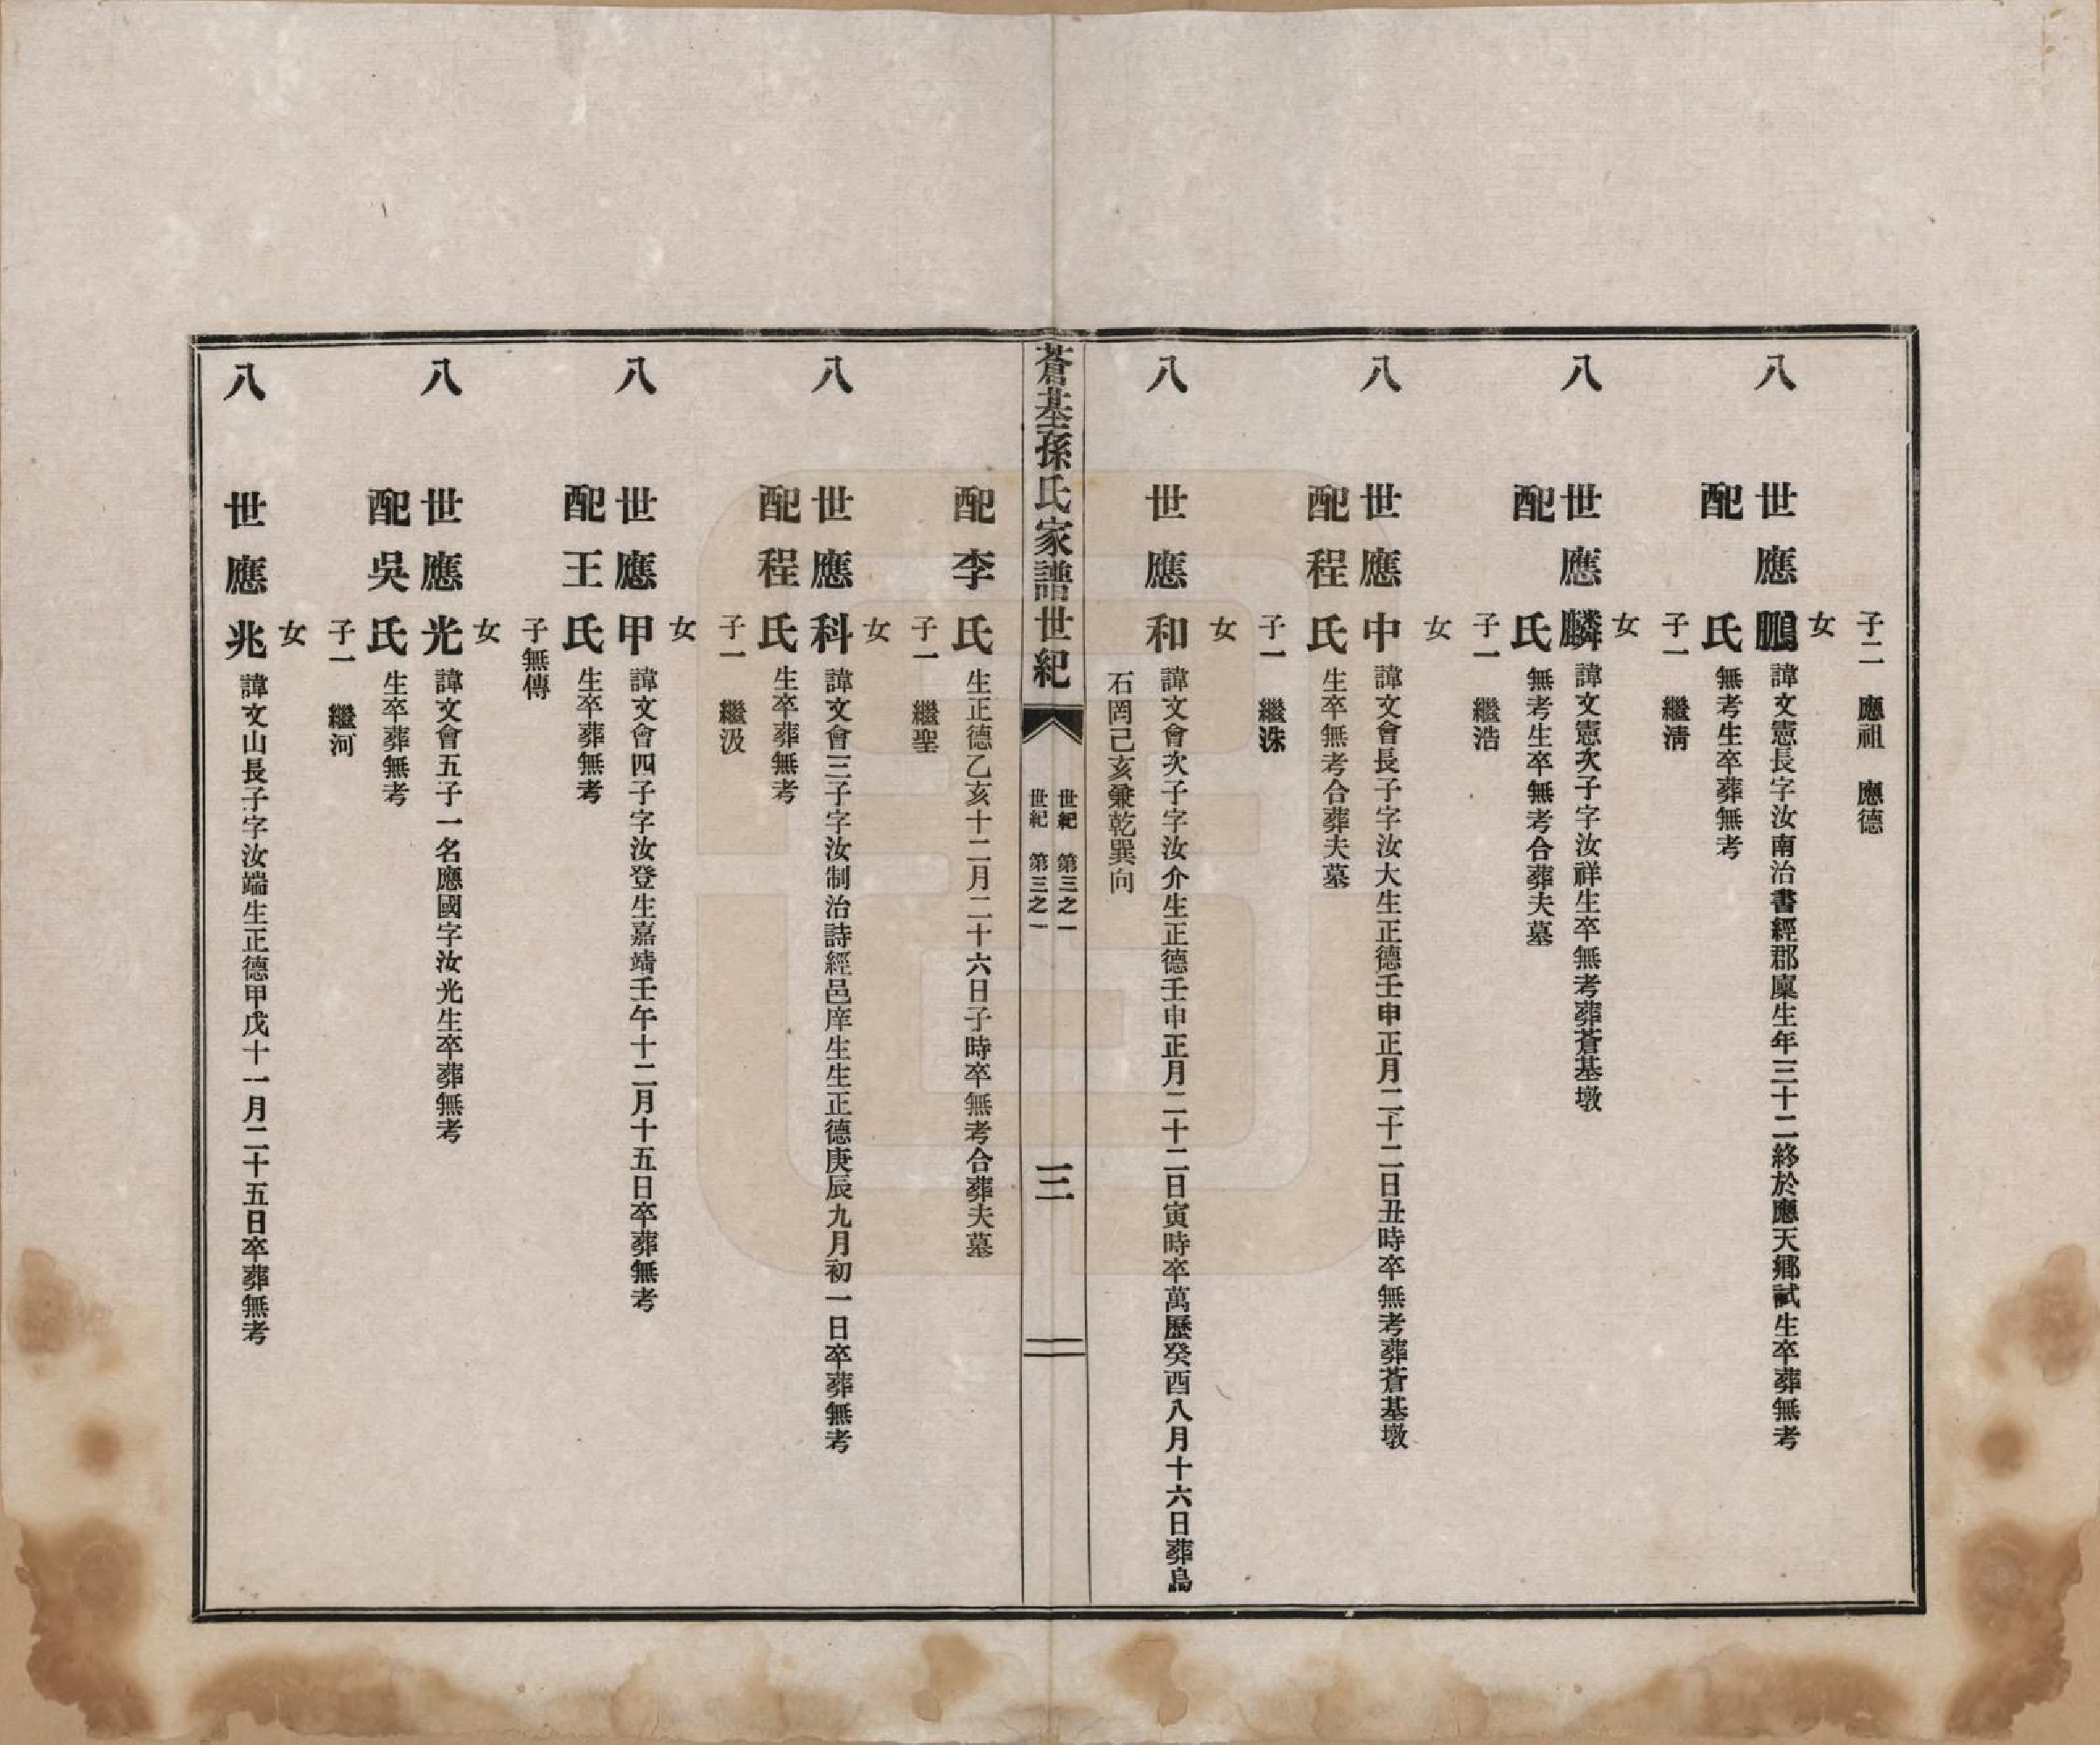 子二　應祖　應德
女
八世應鵬　諱文憲長子字汝南治書經郡廩生年三十二終於應天鄉試生卒葬無考
配　氏　無考生卒葬無考
子一　繼淸
女
八世應麟　諱文憲次子字汝祥生卒無考葬蒼基墩
配　氏　無考生卒無考合葬夫墓
子一　繼浩
女
八世應中　諱文會長子字汝大生正德壬申正月二十二日丑時卒無考葬蒼基墩
配程氏　生卒無考合葬夫墓
子一　繼洙
女
八世應和　諱文會次子字汝介生正德壬申正月二十二日寅時卒萬歷癸酉八月十六日葬烏
石罔己亥兼乾巽向
蒼基孫氏家譜世紀
世紀　第三之一
世紀　第三之一
三
配李氏　生正德乙亥十二月二十六日子時卒無考合葬夫墓
子一　繼聖
女
八世應科　諱文會三子字汝制治詩經邑庠生生正德庚辰九月初一日卒葬無考
配程氏　生卒葬無考
子一　繼汲
女
八世應甲　諱文會四子字汝登生嘉靖壬午十二月十五日卒葬無考
配王氏　生卒葬無考
子無傳
女
八世應光　諱文會五子一名應國字汝光生卒葬無考
配吳氏　生卒葬無考
子一　繼河
女
八世應兆　諱文山長子字汝端生正德甲戊十一月二十五日卒葬無考